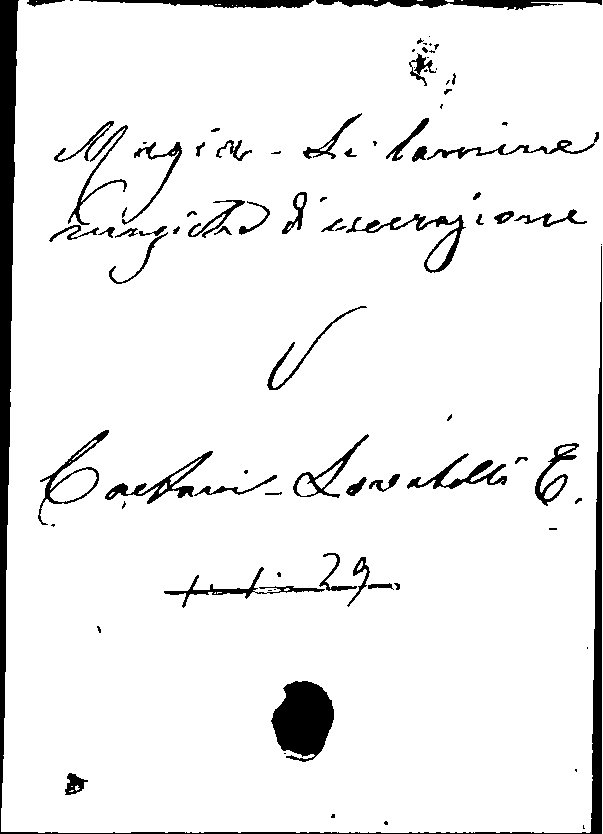 Magia - Le lamine
magiche di esecrazione
V
Caetani - Lovatelli E.
1. 1. 29